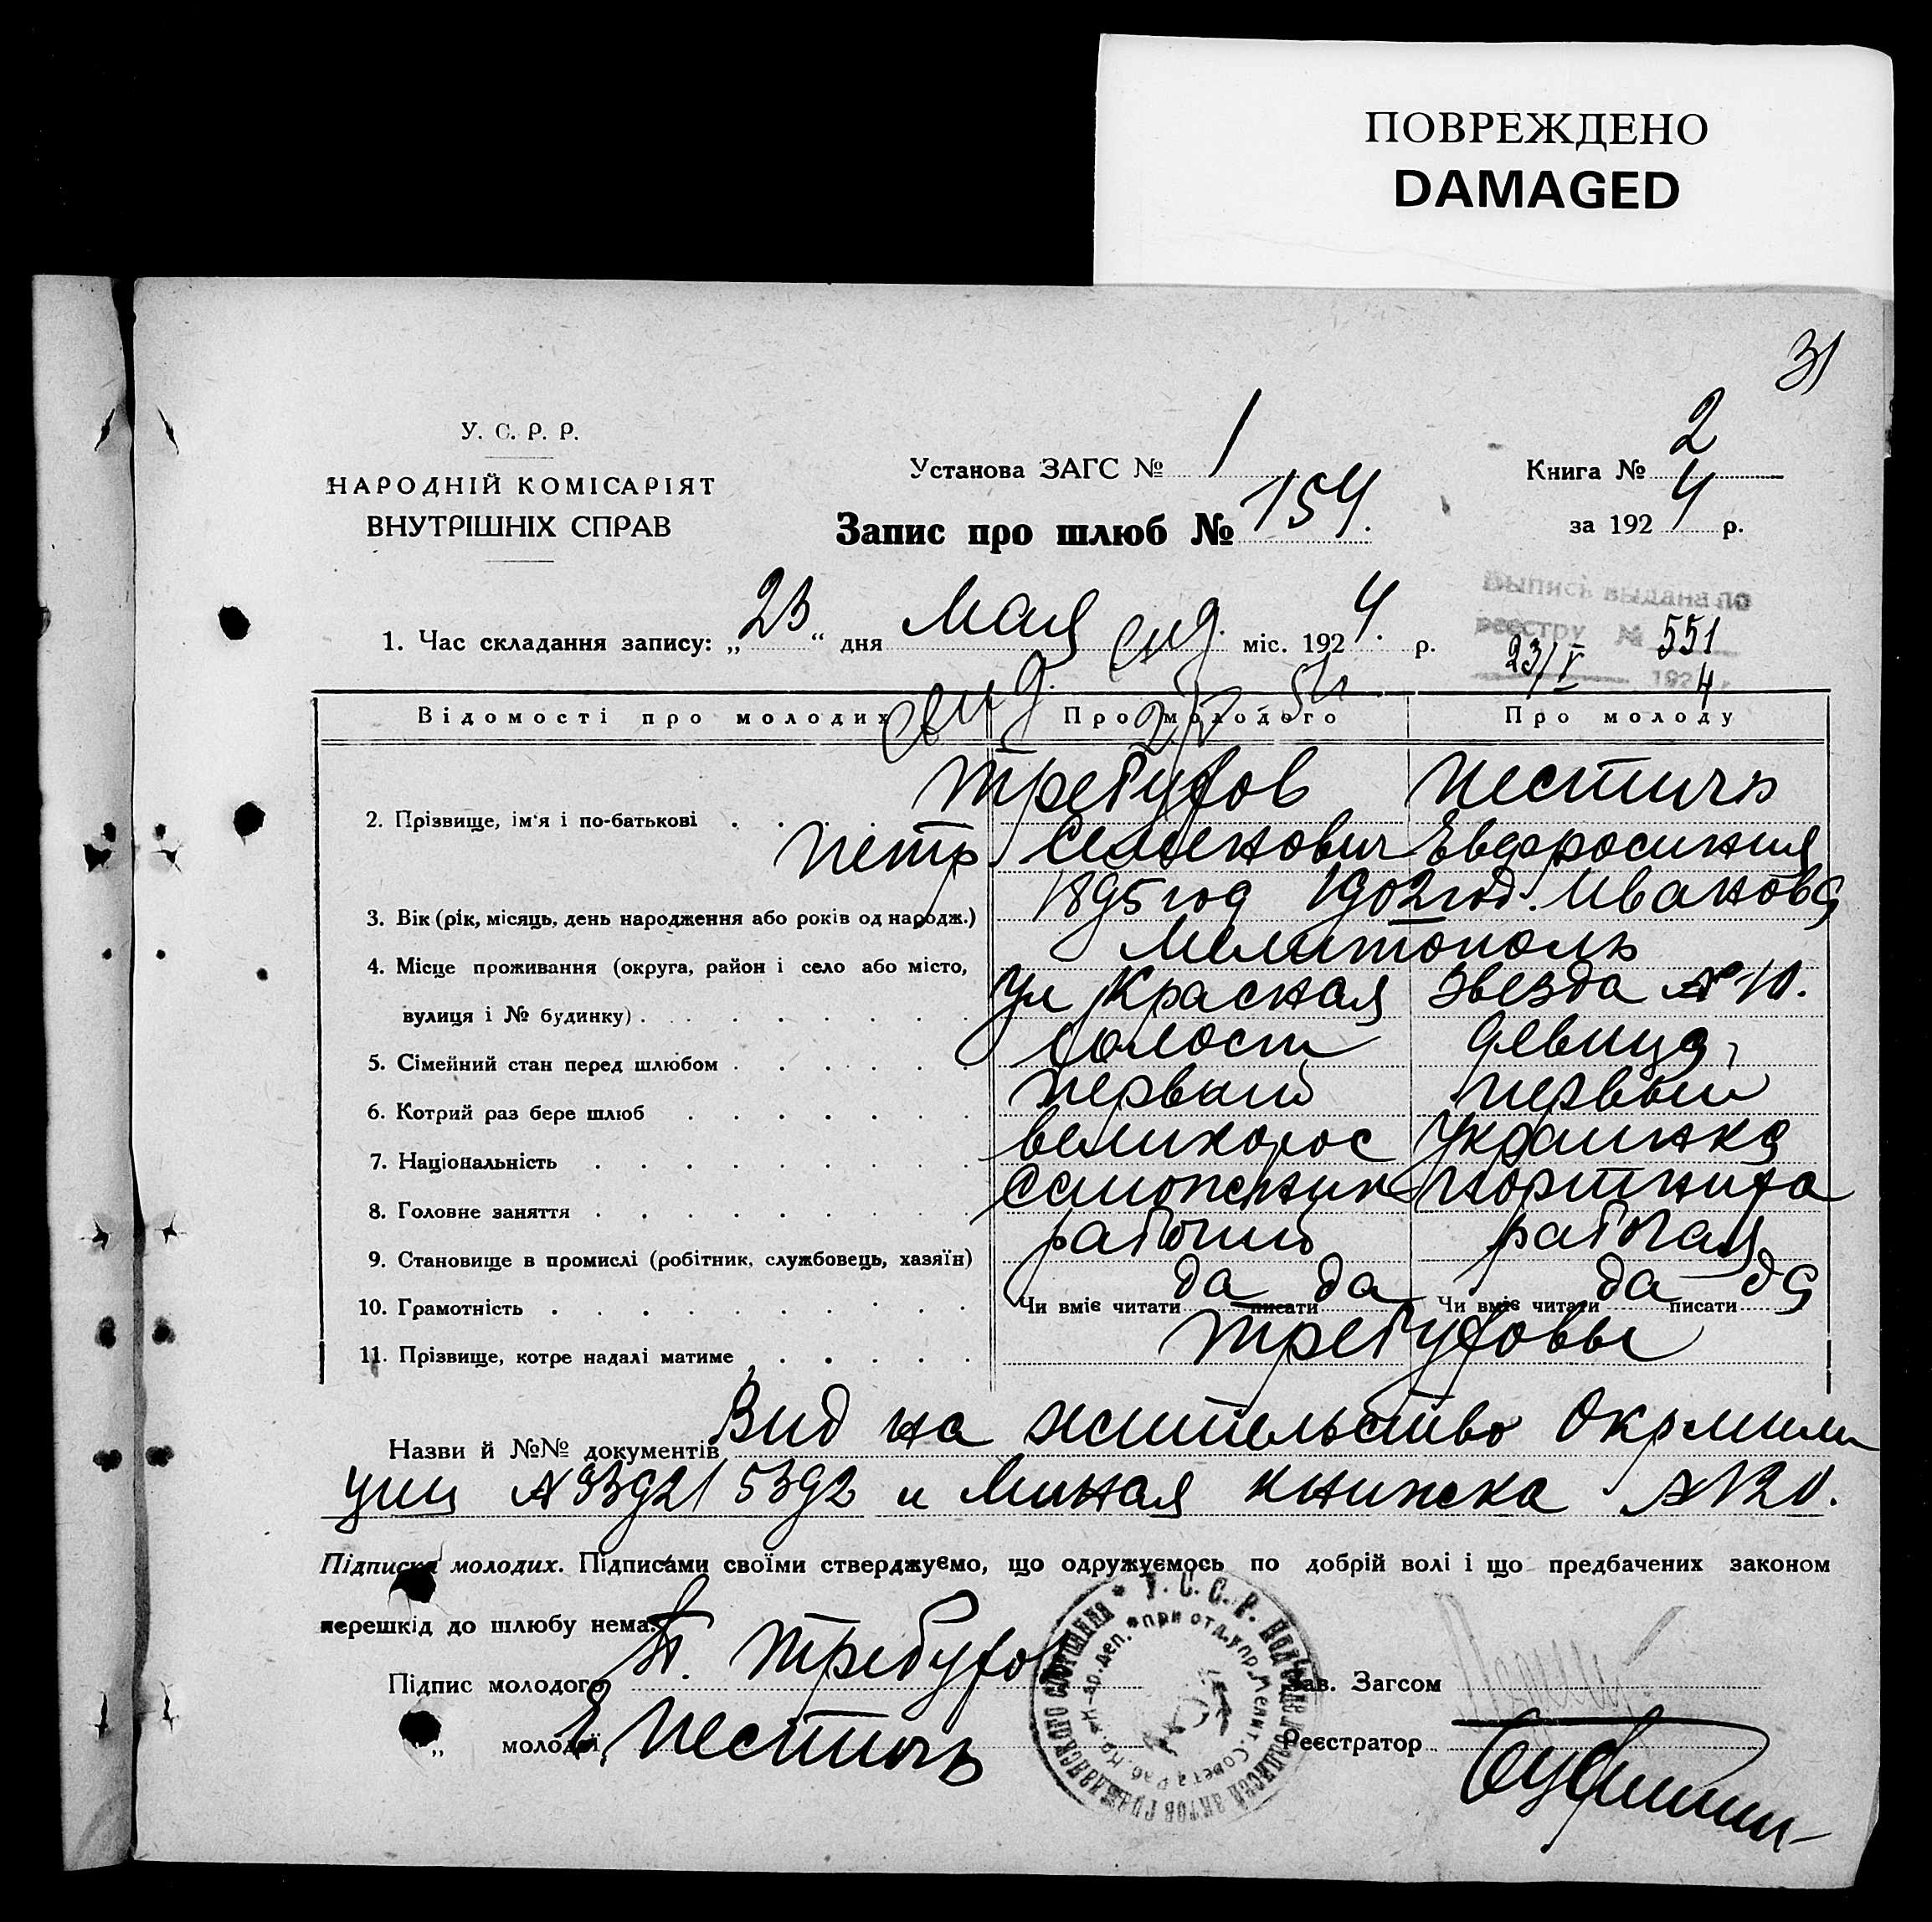 ПОВРЕЖДЕНО
DAMAGED
31
У. С. Р. Р.
НАРОДНІЙ КОМІСАРІЯТ
ВНУТРІШНІХ СПРАВ
Установа ЗАГС № 1
Запис про шлюб № 154.
Книга № 2
за 1924 р.
Выпись выдана по
реестру № 551
23/V 1924 г.
1. Час складання запису: „23“ дня Мая міс. 1924. р.
Відомості про молодих Про молодого Про молоду
2. Прізвище, ім'я і по-батькові Требухов Пестичь
Петр Семенович Евфросиния
3. Вік (рік, місяць, день народження або років од народж.) 1895 год 1902 год. Иванова
4. Місце проживання (округа, район і село або місто, Мелитополь
вулиця і № будинку) Ул Красная Звезда № 10.
5. Сімейний стан перед шлюбом холост девица
6. Котрий раз бере шлюб первый первый
7. Національність великорос Украинка
8. Головне заняття сапожник портниха
9. Становище в промислі (робітник, службовець, хазяїн) рабочий рабочая
10. Грамотність Чи вміє читати да писати да Чи вміє читати да писати да
11. Прізвище, котре надалі матиме Требуховы
Назви й №№ документів Вид на жительство Окрмили
ции № 5392 и книжка № 120.
Підписка молодих. Підписами своїми стверджуємо, що одружуємось по добрій волі і що предбачених законом
перешкід до шлюбу нема.
Підпис молодого П. Требухов
„ молодої Е. Пестичь
Зав. Загсом
Реєстратор